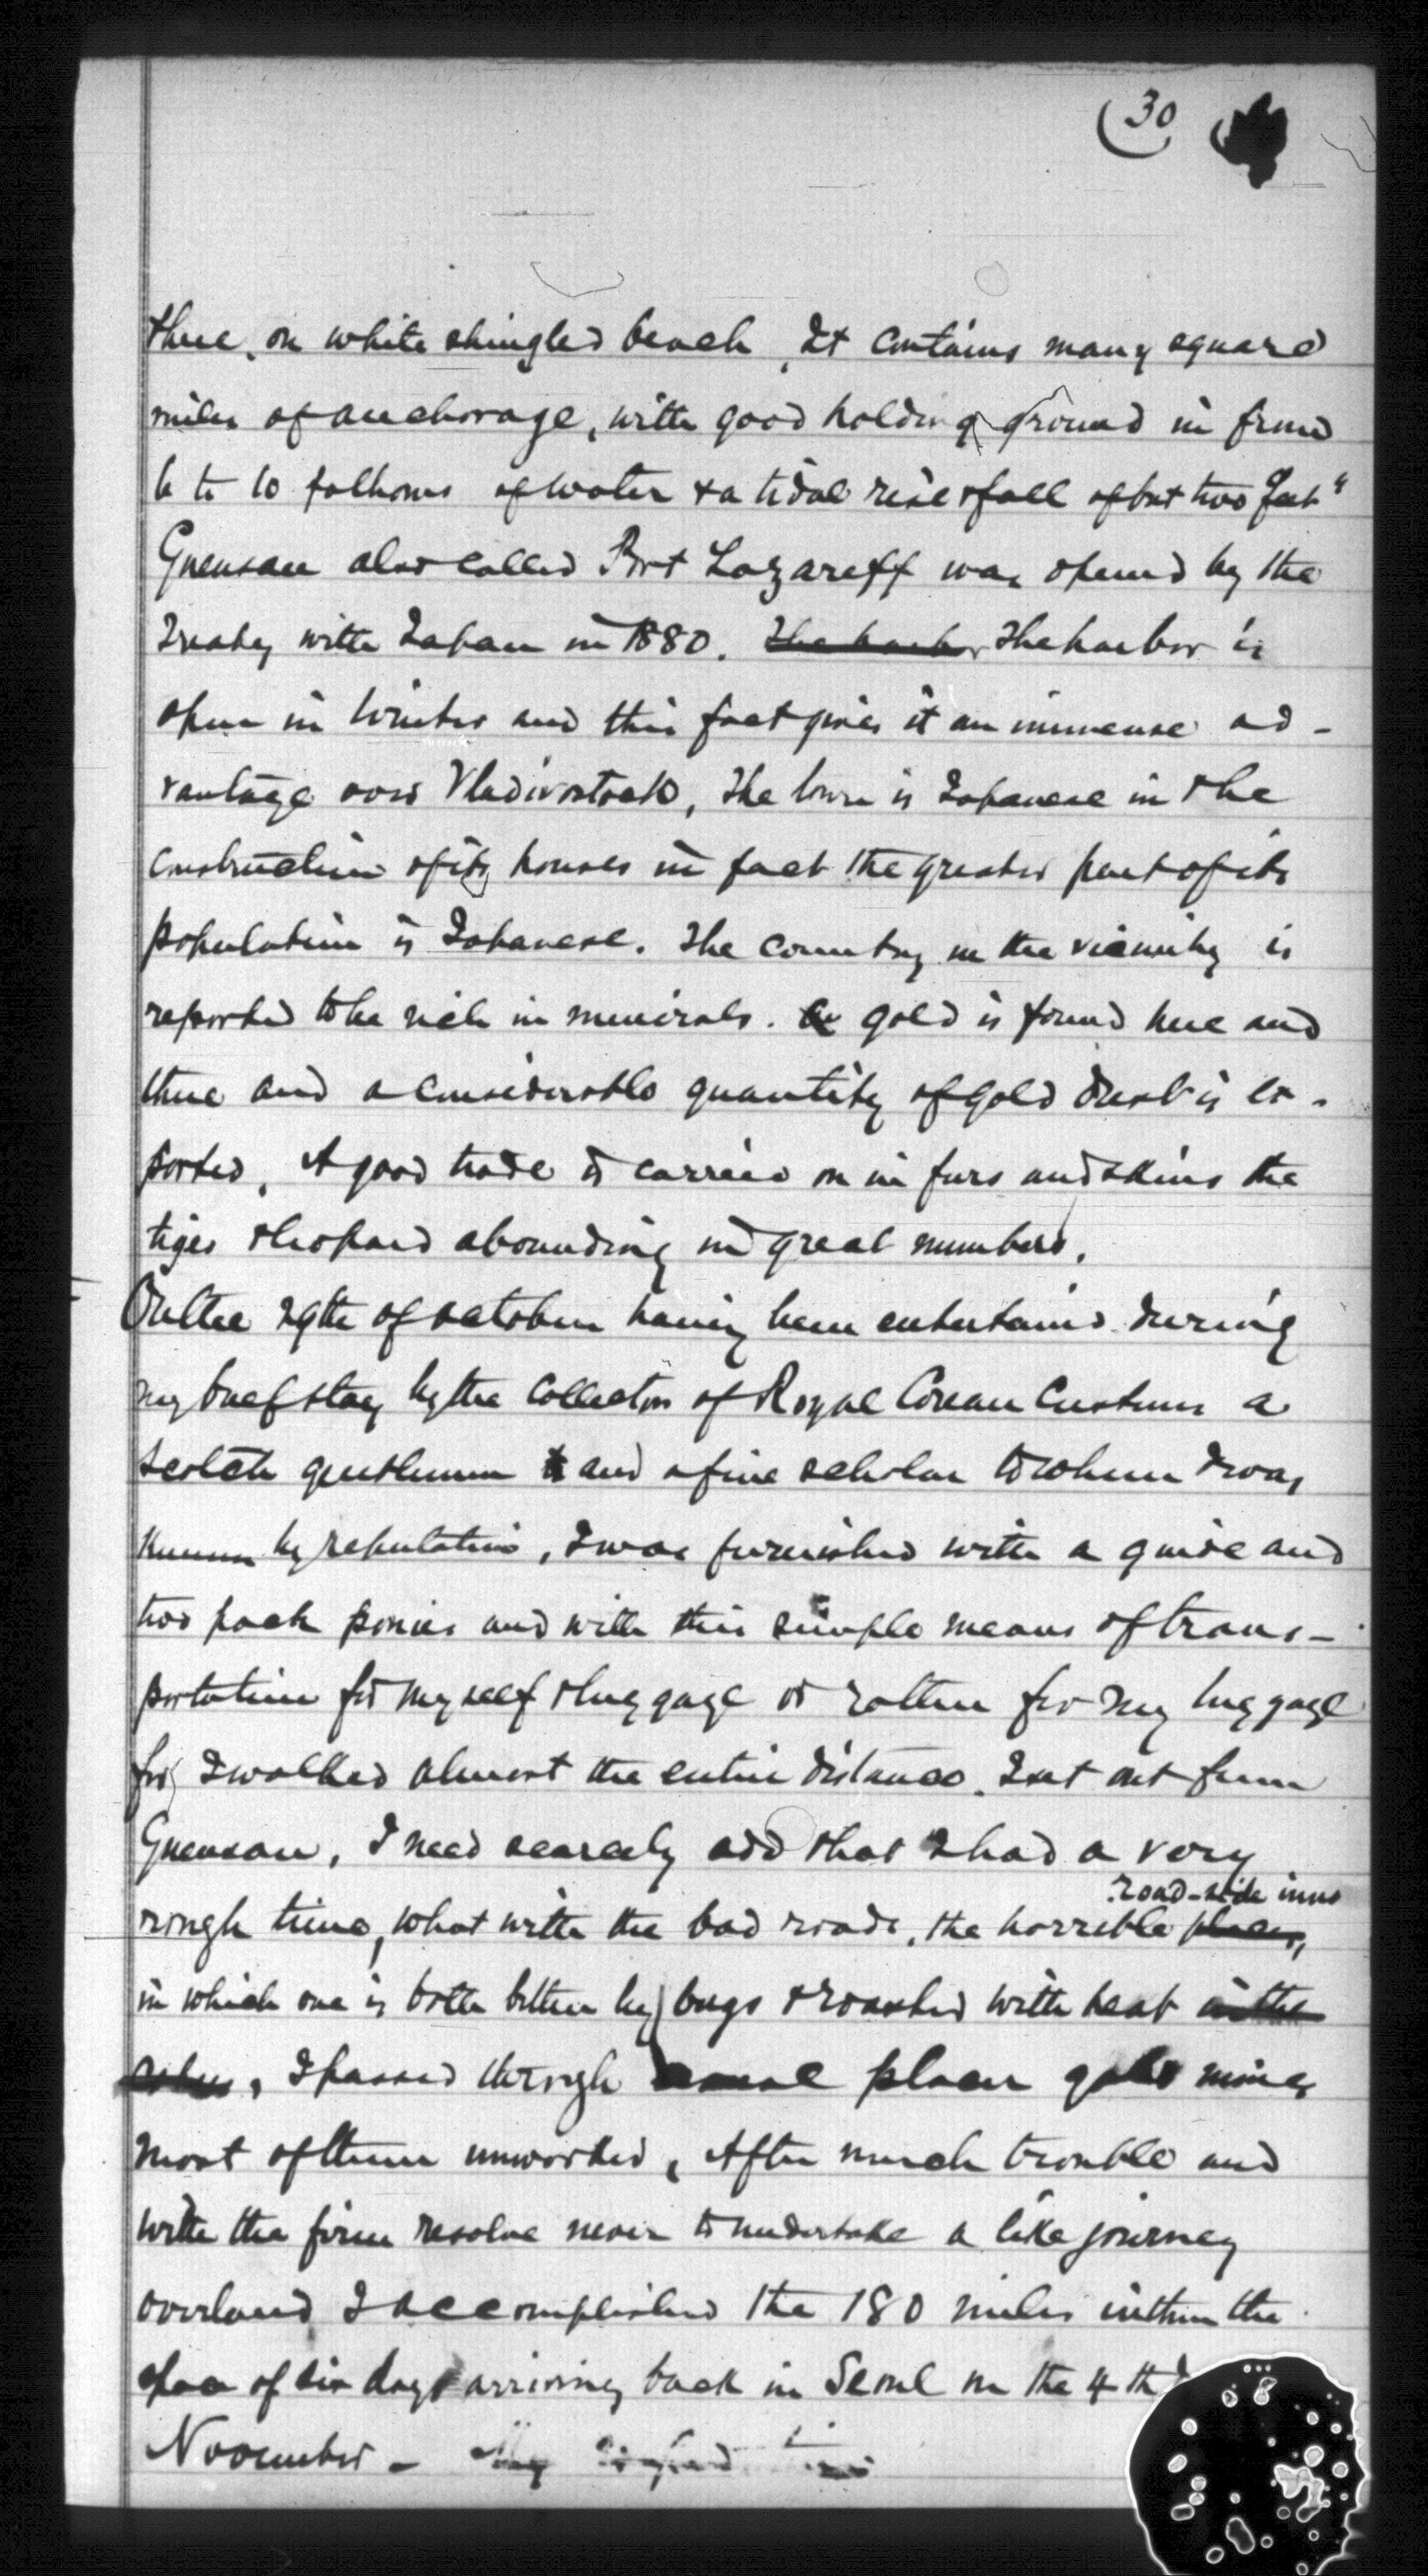 (30
there, on white shingled beach, It contains many square
miles of anchorage, with good holding ground in from
6 to 10 fathoms of water & a tidal rise & fall of but two feet"
Guensan also called Port Lazareff was opened by the
treaty with Japan in 1880. The harbor The harbor is
open in Winter and this fact gives it an immense ad-
vantage over Vladivostock, The town is Japanese in the
construction of its houses in fact the greater part of its
population is Japanese. The country in the vicinity is
reported to be rich in minerals. gold is found here and
there and a considerable quantity of gold dust is ex-
ported, A good trade is carried on in furs and skins the
tiger & leopard abounding in great numbers.
On the 29th of october having been entertained during
my brief stay by the Collector of Royal Corean Customs a
Scotch gentleman and a fine scholar to whom I was
known by reputation, I was furnished with a guide and
two pack ponies and with this simple means of trans-
portation for myself & luggage or rather for my luggage
for I walked almost the entire distance. I set out from
Guensan, I need scarcely add that I had a very
road-side inns
rough time, what with the bad roads, the horrible places,
in which one is both bitten by bugs & roasted with heat in the
, I passed through placer gold mines
most of them unworked, After much trouble and
with the firm resolve never to undertake a like journey
overland I accomplished the 180 miles within the
space of six days arriving back in Seoul on the 4th
November - My